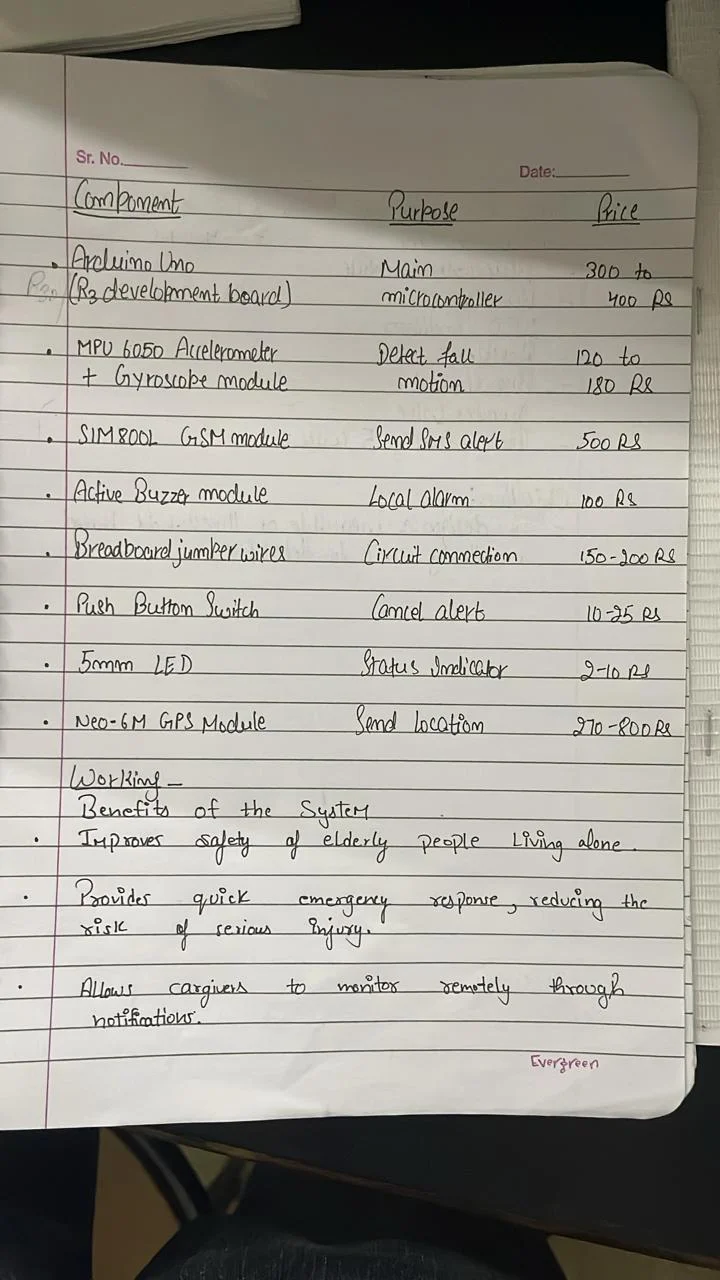 Sr. No.
Date:
Component Purpose Price
• Arduino Uno Main 300 to
(R3 development board) microcontroller 400 RS
• MPU 6050 Accelerometer Detect fall 120 to
+ Gyroscope module motion 180 RS
• SIM800L GSM module Send SMS alert 500 RS
• Active Buzzer module Local alarm 100 RS
• Breadboard jumper wires Circuit connection 150-200 RS
• Push Button Switch Cancel alert 10-25 RS
• 5mm LED Status Indicator 2-10 RS
• Neo-6M GPS Module Send Location 270-800 RS
Working –
Benefits of the System
• Improves safety of elderly people Living alone.
• Provides quick emergency response, reducing the
risk of serious injury.
• Allows cargivers to monitor remotely through
notifications.
Evergreen